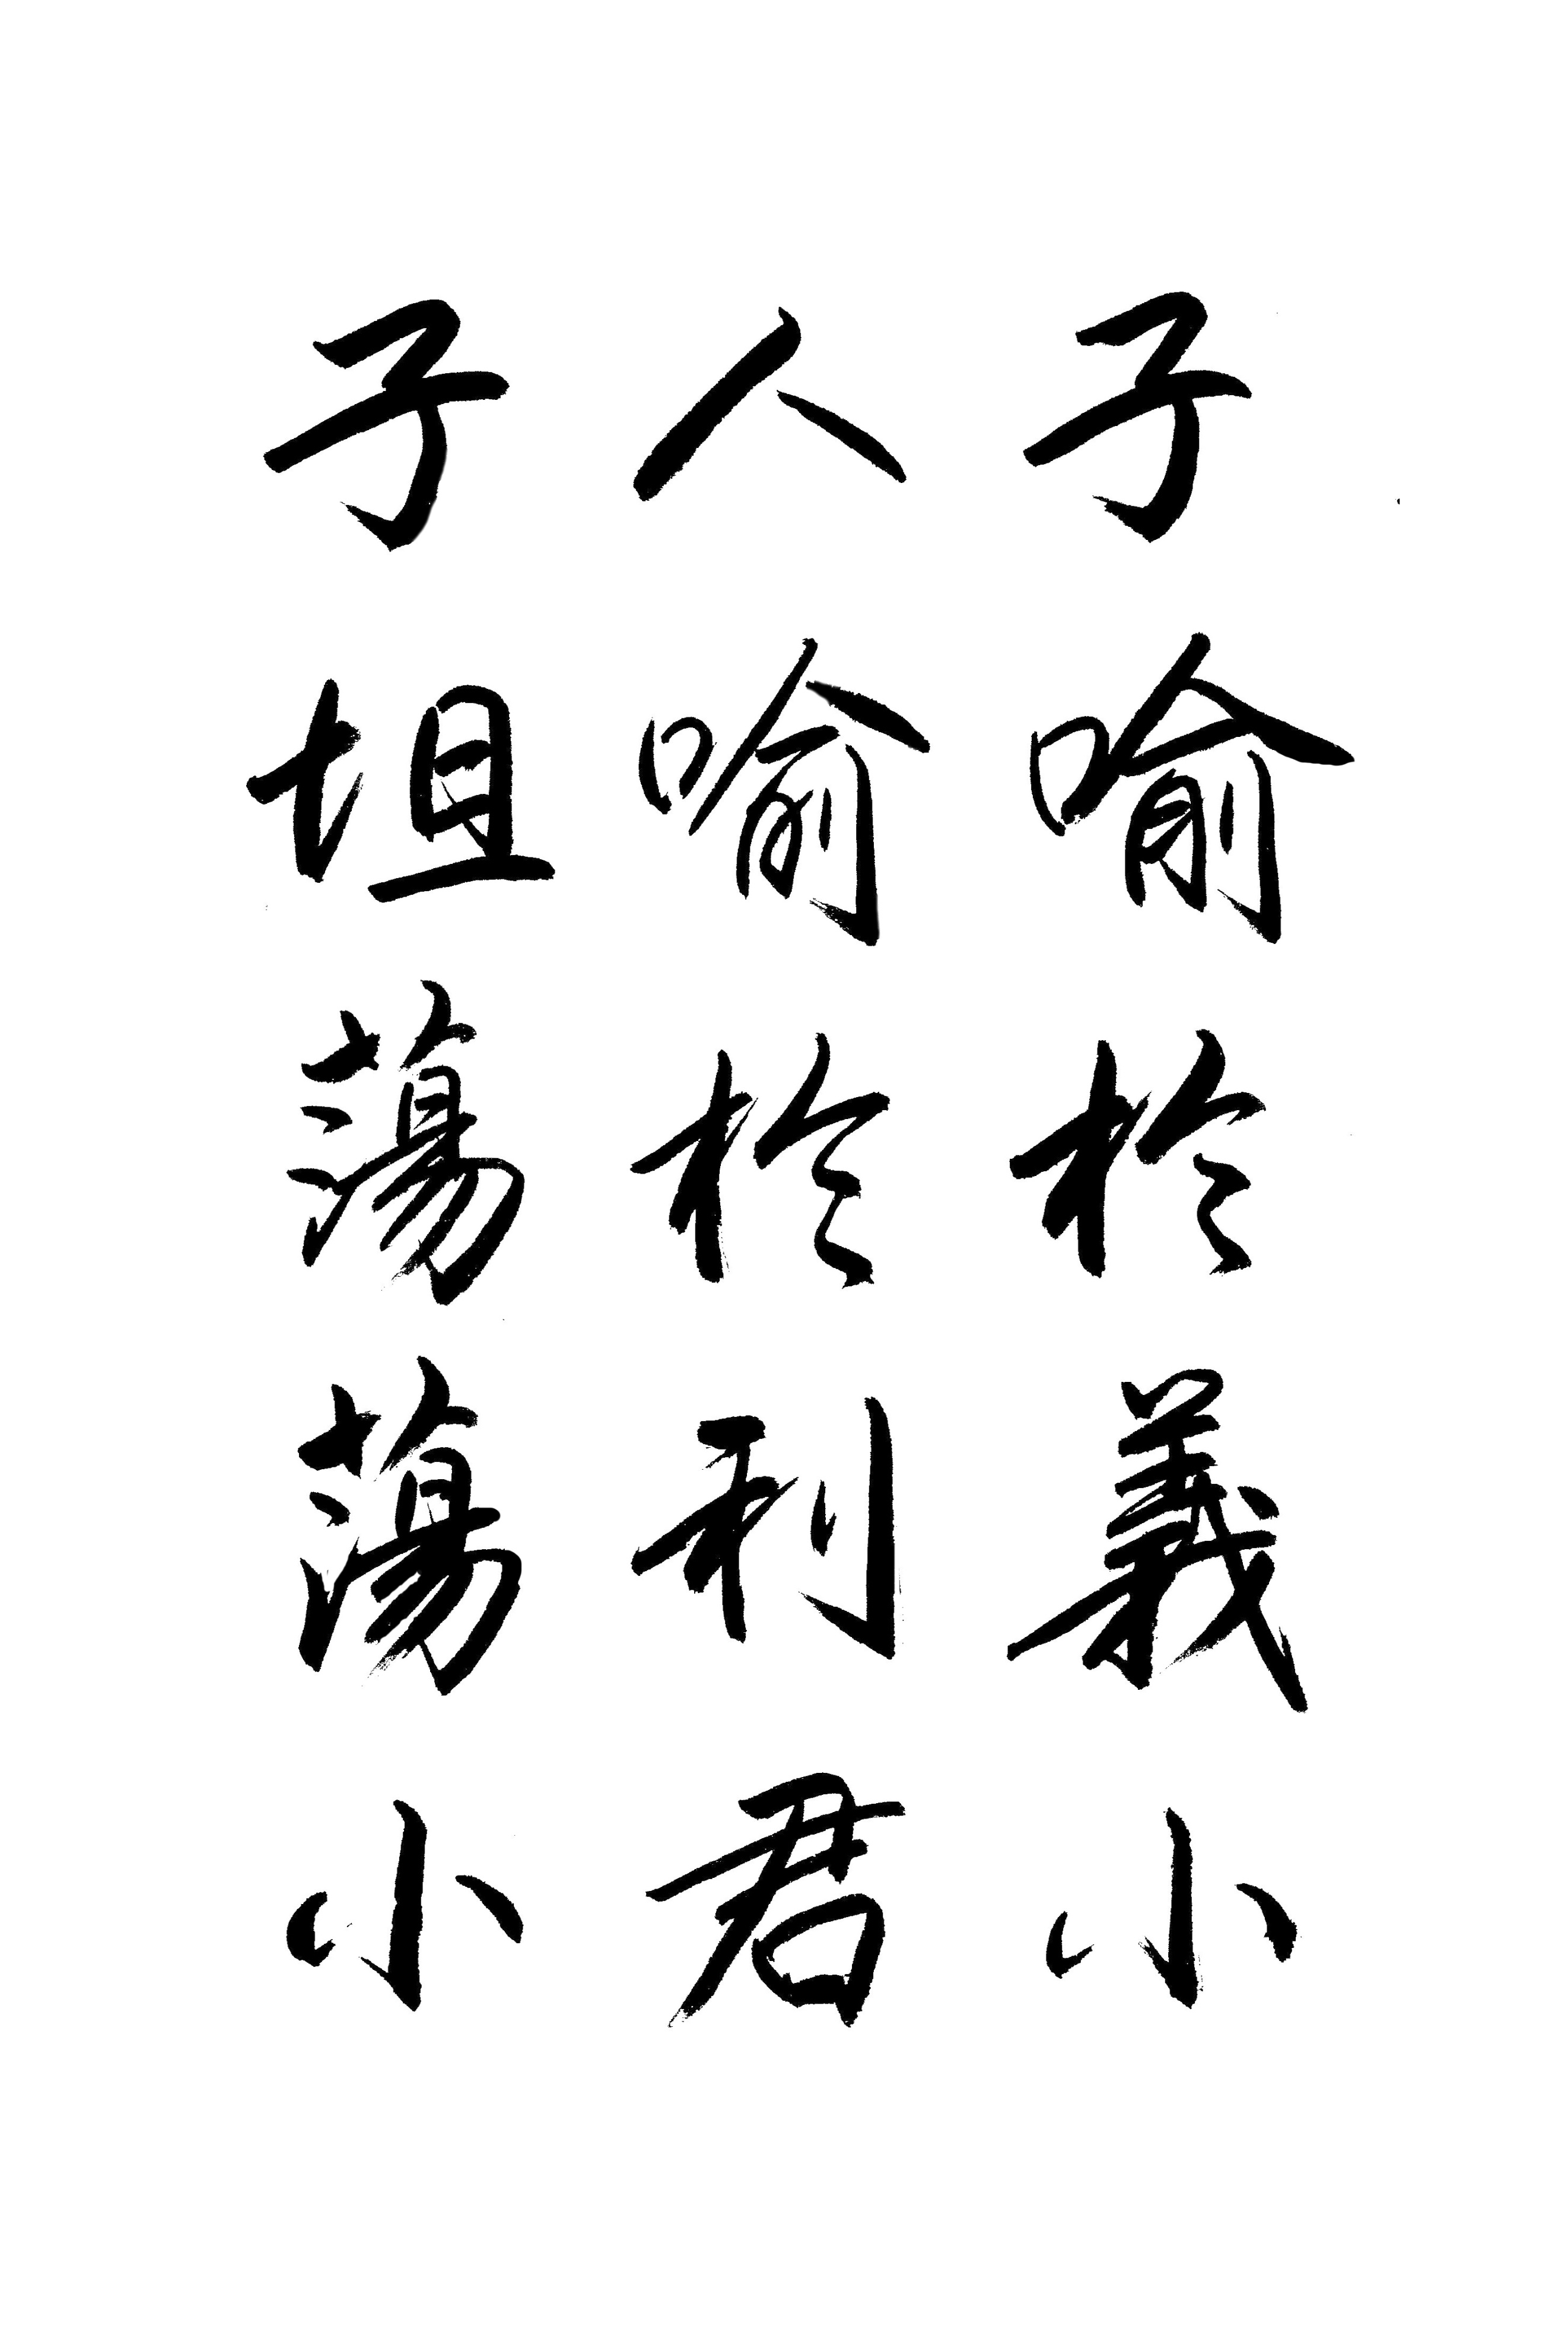 子喻於義小
人喻於利君
子坦蕩蕩小